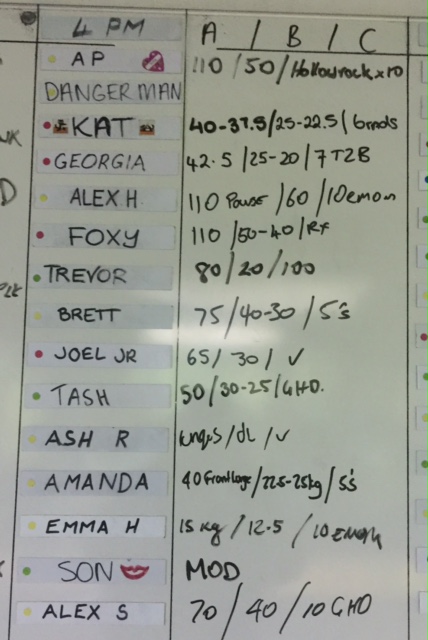 4 PM A / B / C
AP 110 / 50 / Hollowrock x 10
DANGERMAN
KAT 40-37.5/25-22.5/6rnds
GEORGIA 42.5/25-20/7 T2B
ALEX H 110 Pause /60/10emom
FOXY 110/50-40/RX
TREVOR 80/20/100
BRETT 75/40-30/5's
JOEL JR 65/30/✓
TASH 50/30-25/GHD.
ASH R lunges/DL/✓
AMANDA 40 Front /22.5-25kg/5's
EMMA H 15kg/12.5/10 EMOM
SON MOD
ALEX S 70/40/10 GHD